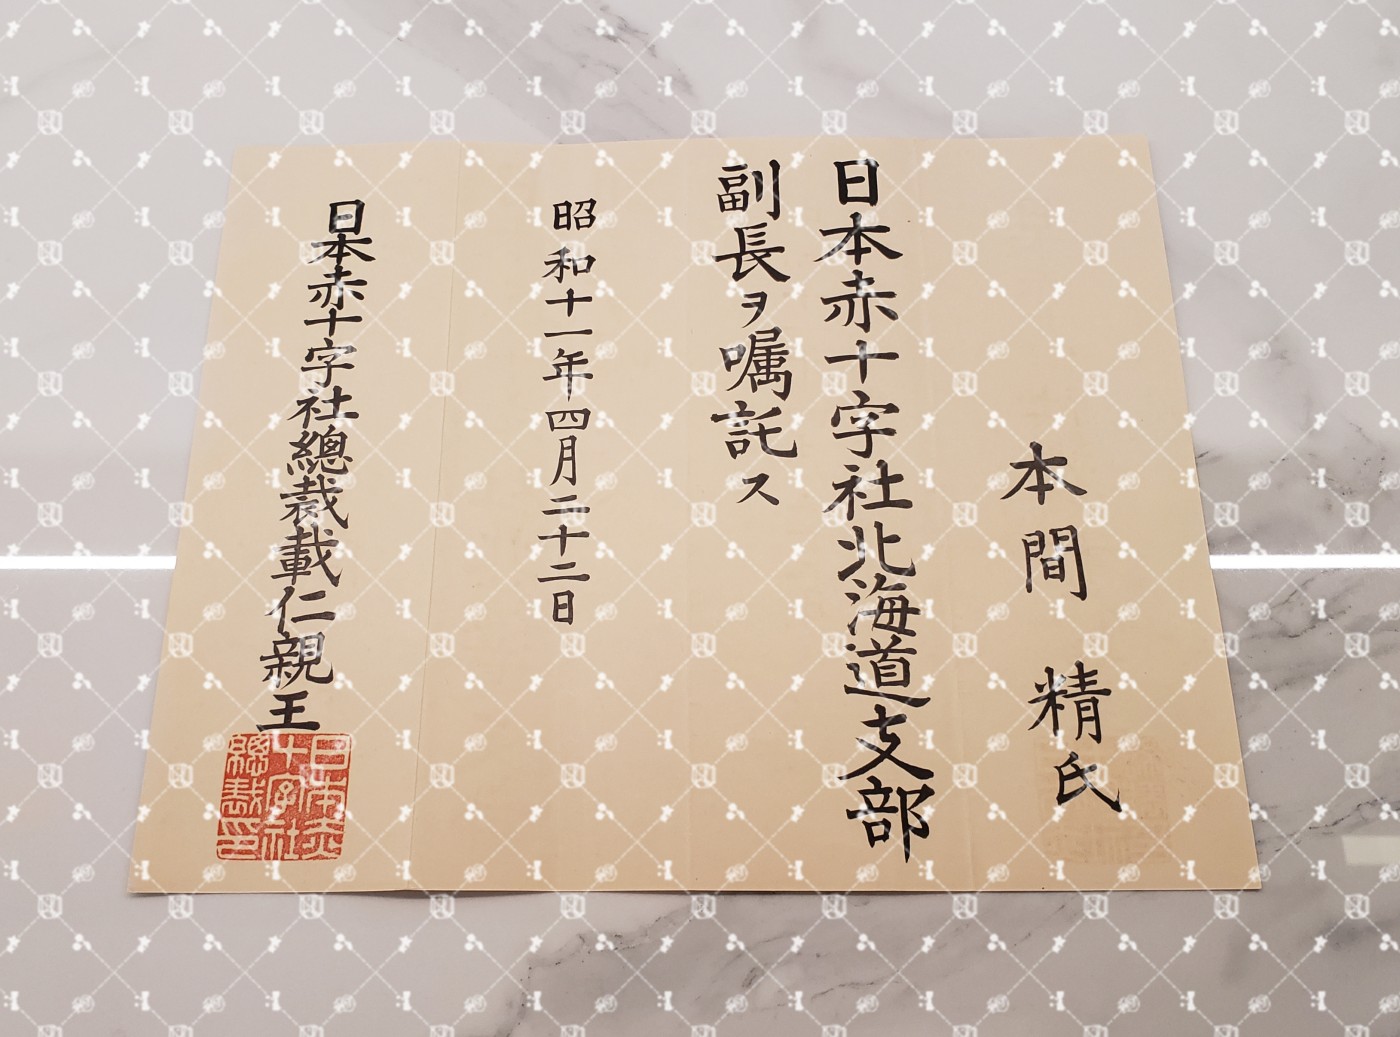 本間 精氏
日本赤十字社北海道支部
副長ヲ嘱託ス
昭和十一年四月二十二日
日本赤十字社總裁載仁親王
日本赤
十字社
總裁印